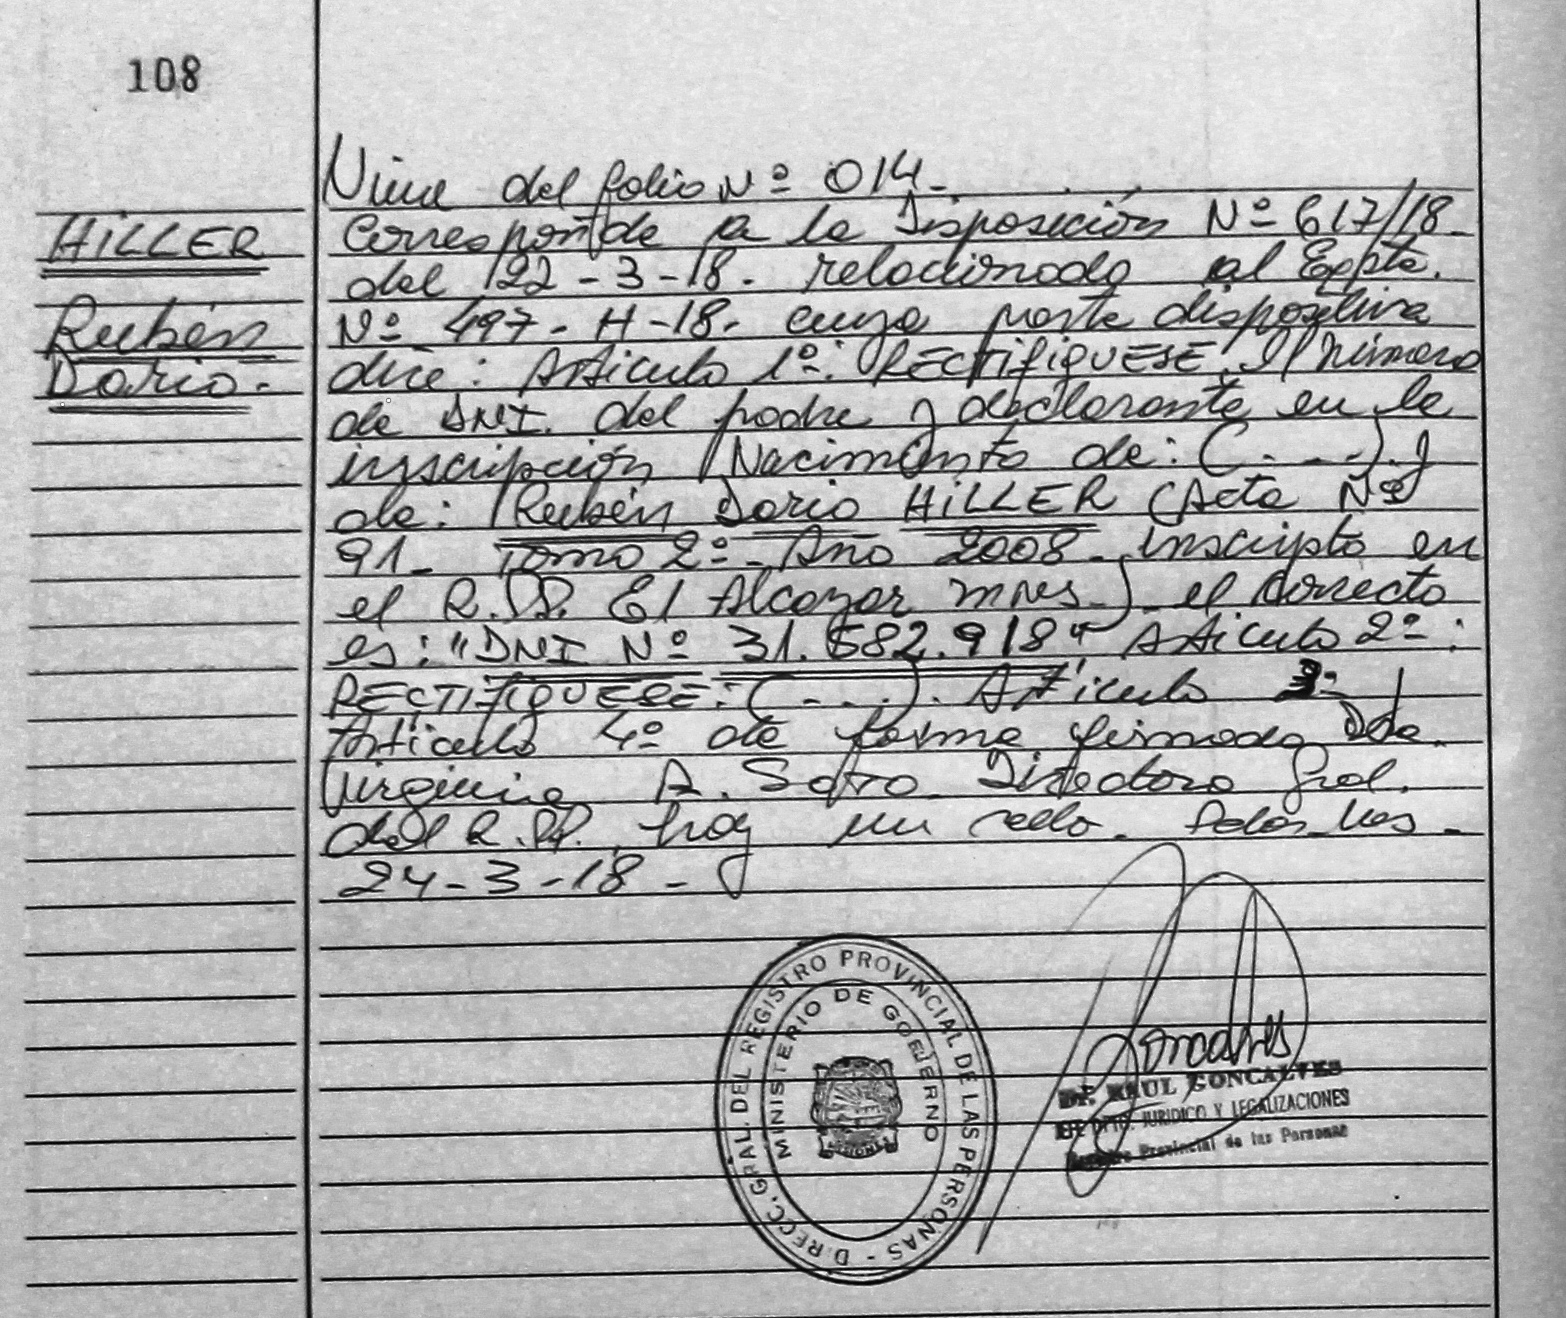 108
Viene del folio Nº 014.
HILLER
Rubén
Dario.
Corresponde a la Disposición Nº 617/18
del 22-3-18. relacionada al Expte.
Nº 497-H-18- cuya parte dispositiva
dice: Articulo 1º: RECTIFIQUESE el número
de DNI. del padre y declarante en la
inscripción Nacimiento de: (. . . .) y
de: Rubén Dario HILLER (Acta Nº
91- Tomo 2º- Año 2008- inscripto en
el R.PP. El Alcazar mnes.) el correcto
es: "DNI Nº 31.582.918" Articulo 2º:
RECTIFIQUESE: (. . . .). Articulo 3º
Articulo 4º de forma firmado Dda.
Virginia A. Soto. Directora Gral.
del R.PP. hay un sello. Posadas
24-3-18-
DIRECC. GRAL. DEL REGISTRO PROVINCIAL DE LAS PERSONAS -
MINISTERIO DE GOBIERNO
MISIONES
Goncalves
Dr. RAUL GONCALVES
JEFE DPTO. JURIDICO Y LEGALIZACIONES
Registro Provincial de las Personas